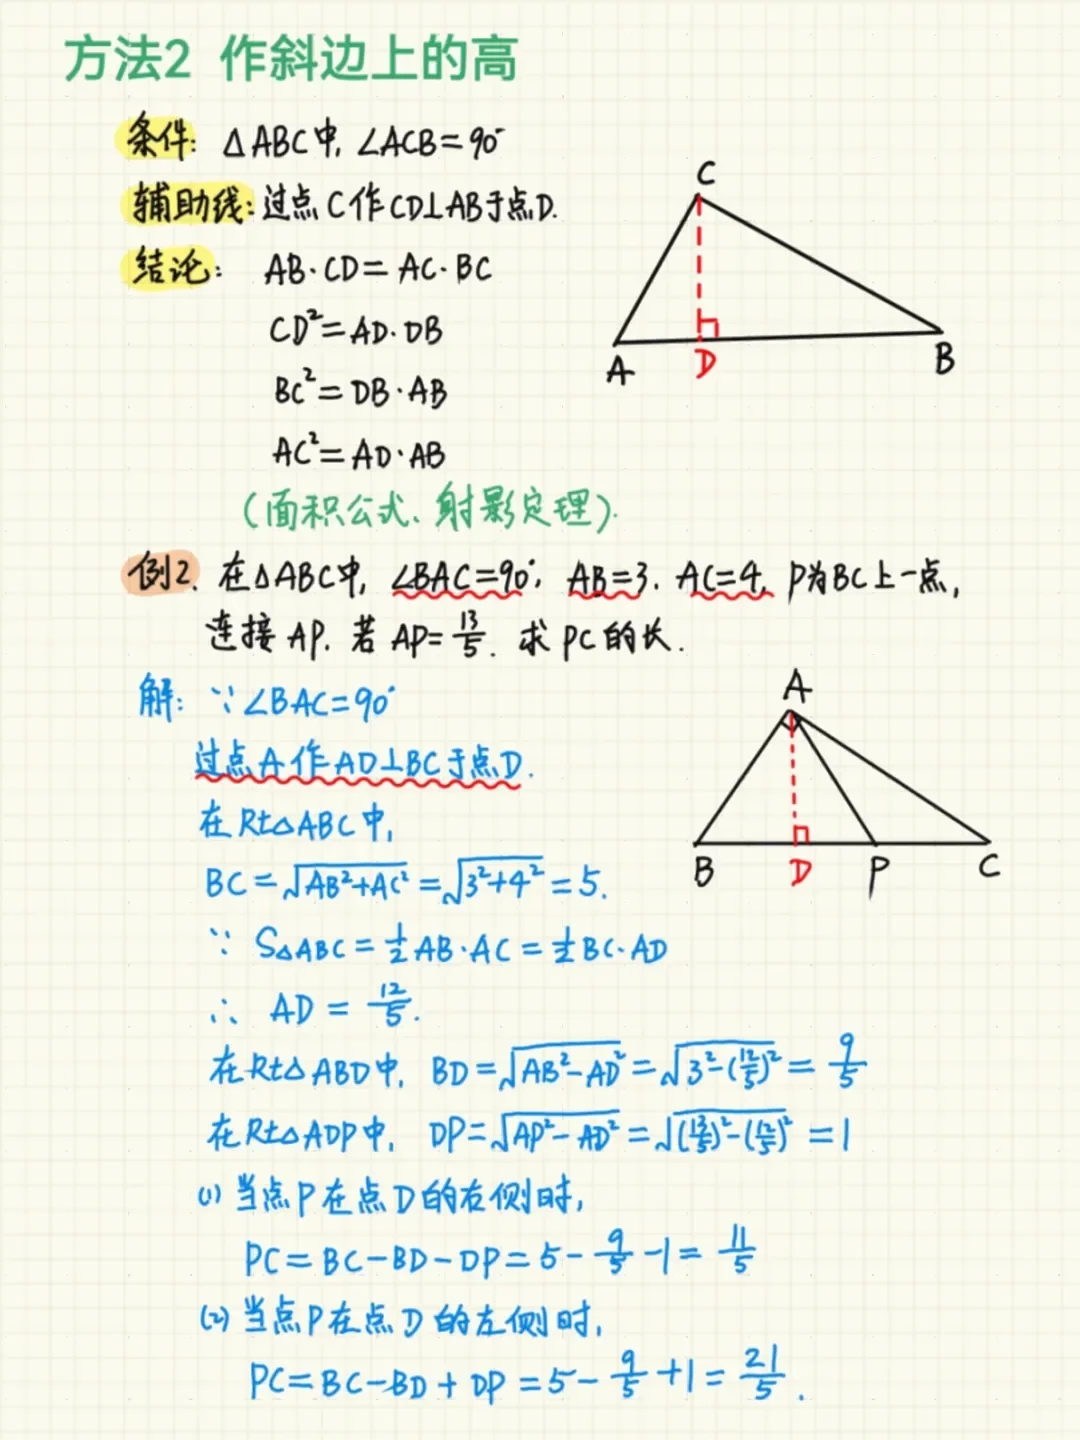 方法2 作斜边上的高
条件: △ABC中, ∠ACB=90°
辅助线: 过点C作CD⊥AB于点D.
结论: AB·CD=AC·BC
CD²=AD·DB
BC²=DB·AB
AC²=AD·AB
(面积公式、射影定理).
C
A
D
B
例2. 在△ABC中, ∠BAC=90°, AB=3. AC=4, P为BC上一点,
连接AP. 若AP=13/5. 求PC的长.
解: ∵∠BAC=90°
过点A作AD⊥BC于点D.
在Rt△ABC中,
BC=√(AB²+AC²)=√(3²+4²)=5.
∵ S△ABC=1/2AB·AC=1/2BC·AD
∴ AD=12/5.
A
B
D
P
C
在Rt△ABD中, BD=√(AB²-AD²)=√(3²-(12/5)²)=9/5
在Rt△ADP中, DP=√(AP²-AD²)=√((13/5)²-(12/5)²)=1
(1)当点P在点D的右侧时,
PC=BC-BD-DP=5-9/5-1=11/5
(2)当点P在点D的左侧时,
PC=BC-BD+DP=5-9/5+1=21/5.